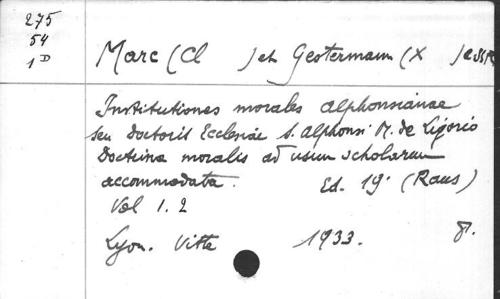 275
54
1D
Marc (Cl ) et Gestermann (X ) CSSR
Institutiones morales alphonsianae
seu Doctoris Ecclesiae S. Alphonsi M. de Ligorio
Doctrina moralis ad usum scholarum
accommodata. Ed. 19. (Raus)
Vol 1.2
Lyon. Vitte 1933. 8.